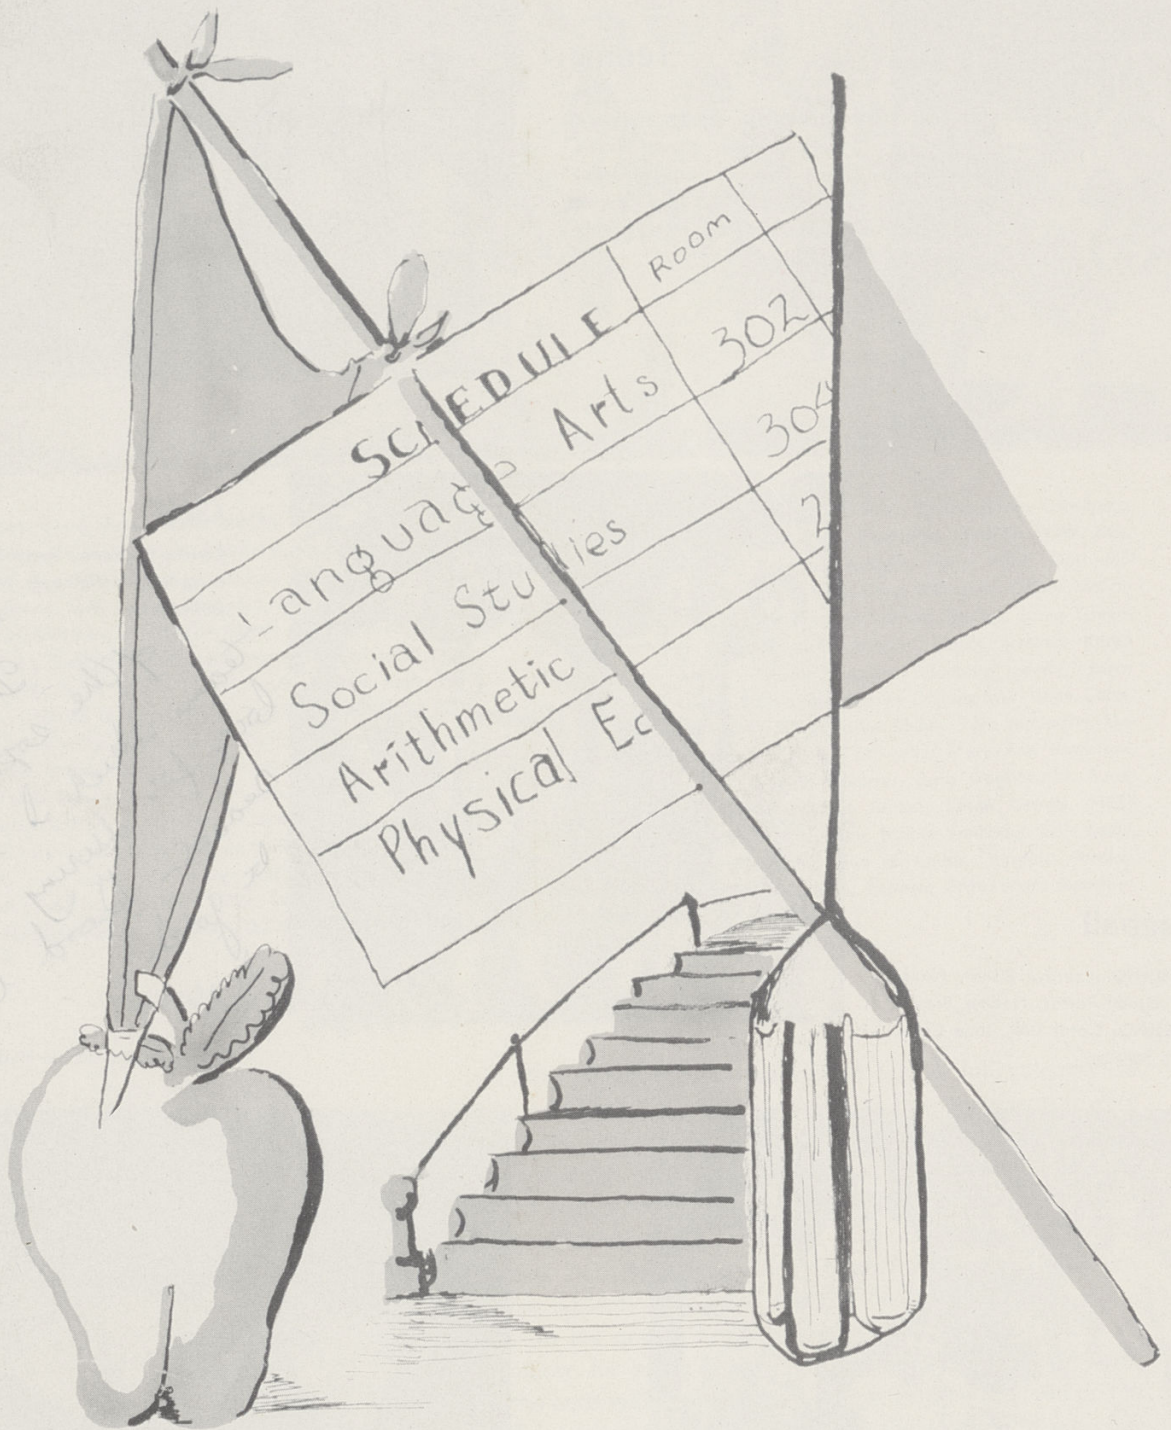 SCHEDULE ROOM
Language Arts 302
Social Studies 304
Arithmetic 2
Physical Ed